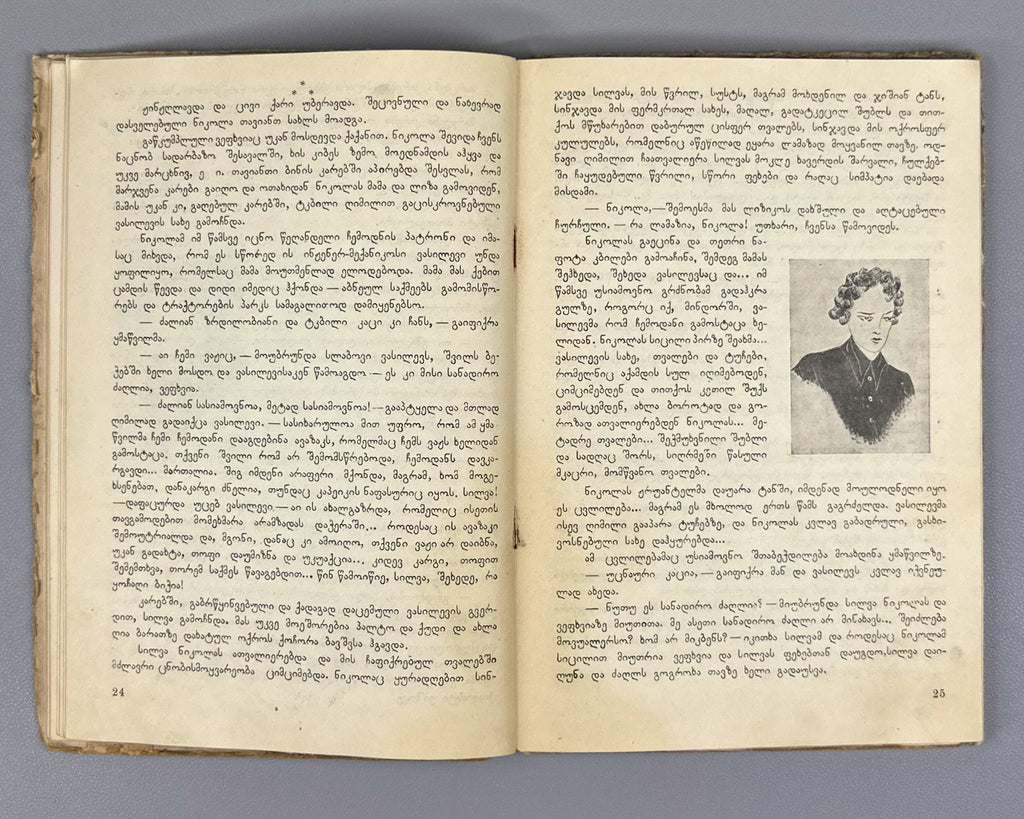 * * *
ჟინჟღლავდა და ცივი ქარი უბერავდა. შეცივნული და ნახევრად
დასველებული ნიკოლა თავიანთ სახლს მოადგა.
გაწკუმპლული ვეფხვიაც უკან მოსდევდა ქაქანით. ნიკოლა შევიდა ჩვენს
ნაცნობ სადარბაზო შესავალში, ხის კიბეს ზემო მოედნამდის აჰყვა და
უკვე მარცხნივ, ე. ი. თავიანთი ბინის კარებში აპირებდა შესვლას, რომ
მარჯვენა კარები გაიღო და ოთახიდან ნიკოლას მამა და ლიზა გამოვიდენ,
მამის უკან კი, გაღებულ კარებში, ტკბილი ღიმილით გაცისკროვნებული
ვასილევის სახე გამოჩნდა.
ნიკოლამ იმ წამსვე იცნო წეღანდელი ჩემოდნის პატრონი და იმა-
საც მიხვდა, რომ ეს სწორედ ის ინჟენერ-მექანიკოსი ვასილევი უნდა
ყოფილიყო, რომელსაც მამა მოუთმენლად ელოდებოდა. მამა მას ქებით
ცამდის წევდა და დიდი იმედიც ჰქონდა — აბნეულ საქმეებს გამომისწო-
რებს და ტრაქტორების პარკს სამაგალითოდ დამიყენებსო.
— ძალიან ზრდილობიანი და ტკბილი კაცი კი ჩანს, — გაიფიქრა
ყმაწვილმა.
— აი ჩემი ვაჟიც, — მოუბრუნდა სლაბოვი ვასილევს, შვილს ბე-
ჭებში ხელი მოსდო და ვასილევისაკენ წამოაგდო — ეს კი მისი სანადირო
ძაღლია, ვეფხვია.
— ძალიან სასიამოვნოა, მეტად სასიამოვნოა! — გააპტყელა და მთლად
ღიმილად გადაიქცა ვასილევი. — სასიხარულოა მით უფრო, რომ ამ ყმა-
წვილმა ჩემი ჩემოდანი დააგდებინა ავაზაკს, რომელმაც ჩემს ვაჟს ხელიდან
გამოსტაცა. თქვენი შვილი რომ არ შემომსწრებოდა, ჩემოდანს დავკა-
რგავდი... მართალია. შიგ იმდენი არაფერი მქონდა, მაგრამ, ხომ მოგე-
ხსენებათ, დანაკარგი ძნელია, თუნდაც კაპეიკის ნაფასურიც იყოს. სილვა!
— დაფაცურდა უცებ ვასილევი — აი ის ახალგაზრდა, რომელიც ისეთის
თავგამოდებით მომეხმარა არამზადას დაჭერაში,.. როდესაც ის ავაზაკი
შემოუტრიალდა და, მგონი, დანაც კი ამოიღო, თქვენი ვაჟი არ დაიბნა,
უკან გადახტა, თოფი დაუმიზნა და უკუაქცია... კიდევ კარგი, თოფით
შემემთხვა, თორემ საქმეს წავაგებდით... წინ წამოიწიე, სილვა, შეხედე, რა
ყოჩაღი ბიჭია!
კარებში, გაბრწყინვებული და ქადაგად დაცემული ვასილევის გვერ-
დით, სილვა გამოჩნდა. მას უკვე მოეშორებია პალტო და ქუდი და ახლა
ღია ბარათზე დახატულ ოქროს ქოჩორა ბავშვსა ჰგავდა.
სილვა ნიკოლას ათვალიერებდა და მის ჩაფიქრებულ თვალებში
მძლავრი ცნობისმოყვარეობა ციმციმებდა. ნიკოლაც ყურადღებით სინ-
24
ჯავდა სილვას, მის წვრილ, სუსტს, მაგრამ მოხდენილ და ჯიშიან ტანს,
სინჯავდა მის ფერმკრთალ სახეს, მაღალ, გადატკეცილ შუბლს და თით-
ქოს მწუხარებით დაბურულ ცისფერ თვალებს, სინჯავდა მის ოქროსფერ
კულულებს, რომელნიც აწეწილად ეყარა ლამაზად მოყვანილ თავზე. ოდ-
ნავი ღიმილით ჩაათვალიერა სილვას მოკლე ხავერდის შარვალი, ჩულქებ-
ში ჩაყუდებული წვრილი, სწორი ფეხები და რაღაც სიმპატია დაებადა
მისდამი.
— ნიკოლა, — შემოესმა მას ლიზიკოს დახშული და აღტაცებული
ჩურჩული. — რა ლამაზია, ნიკოლა! უთხარი, ჩვენსა წამოვიდეს.
ნიკოლას გაეცინა და თეთრი ნა-
ფოტა კბილები გამოაჩინა, შემდეგ მამას
შეჰხედა, შეხედა ვასილევსაც და... იმ
წამსვე უსიამოვნო გრძნობამ გადაჰკრა
გულზე, როგორც იქ, მინდორში, ვა-
სილევმა რომ ჩემოდანი გამოსტაცა ხე-
ლიდან. ნიკოლას სიცილი პირზე შეახმა...
ვასილევის სახე, თვალები და ტუჩები,
რომელნიც აქამდის სულ იღიმებოდენ,
ციმციმებდენ და თითქოს კეთილ შუქს
გამოსცემდენ, ახლა ბოროტად და გო-
როზად ათვალიერებდენ ნიკოლას... მე-
ტადრე თვალები... შეჭმუხვნილი შუბლი
და სადღაც შორს, სიღრმეში წასული
მკაცრი, მომწვანო თვალები.
ნიკოლას ჟრუანტელმა დაუარა ტანში, იმდენად მოულოდნელი იყო
ეს ცვლილება... მაგრამ ეს მხოლოდ ერთს წამს გაგრძელდა. ვასილევმა
ისევ ღიმილი გააპარა ტუჩებზე, და ნიკოლას კვლავ გაბადრული, გასხი-
ვოსნებული სახე დაჰყურებდა...
ამ ცვლილებამაც უსიამოვნო შთაბეჭდილება მოახდინა ყმაწვილზე.
— უცნაური კაცია, — გაიფიქრა მან და ვასილევს კვლავ იჭვნეუ-
ლად ახედა.
— ნუთუ ეს სანადირო ძაღლია? — მიუბრუნდა სილვა ნიკოლას და
ვეფხვიაზე მიუთითა. მე ასეთი სანადირო ძაღლი არ მინახავს... შეიძლება
მოვუალერსო? ხომ არ მიკბენს? — იკითხა სილვამ და როდესაც ნიკოლამ
სიცილით მიუთრია ვეფხვია და სილვას ფეხებთან დაუგდო, სილვა დაი-
ღუნა და ძაღლს გოგროხა თავზე ხელი გადაუსვა.
25